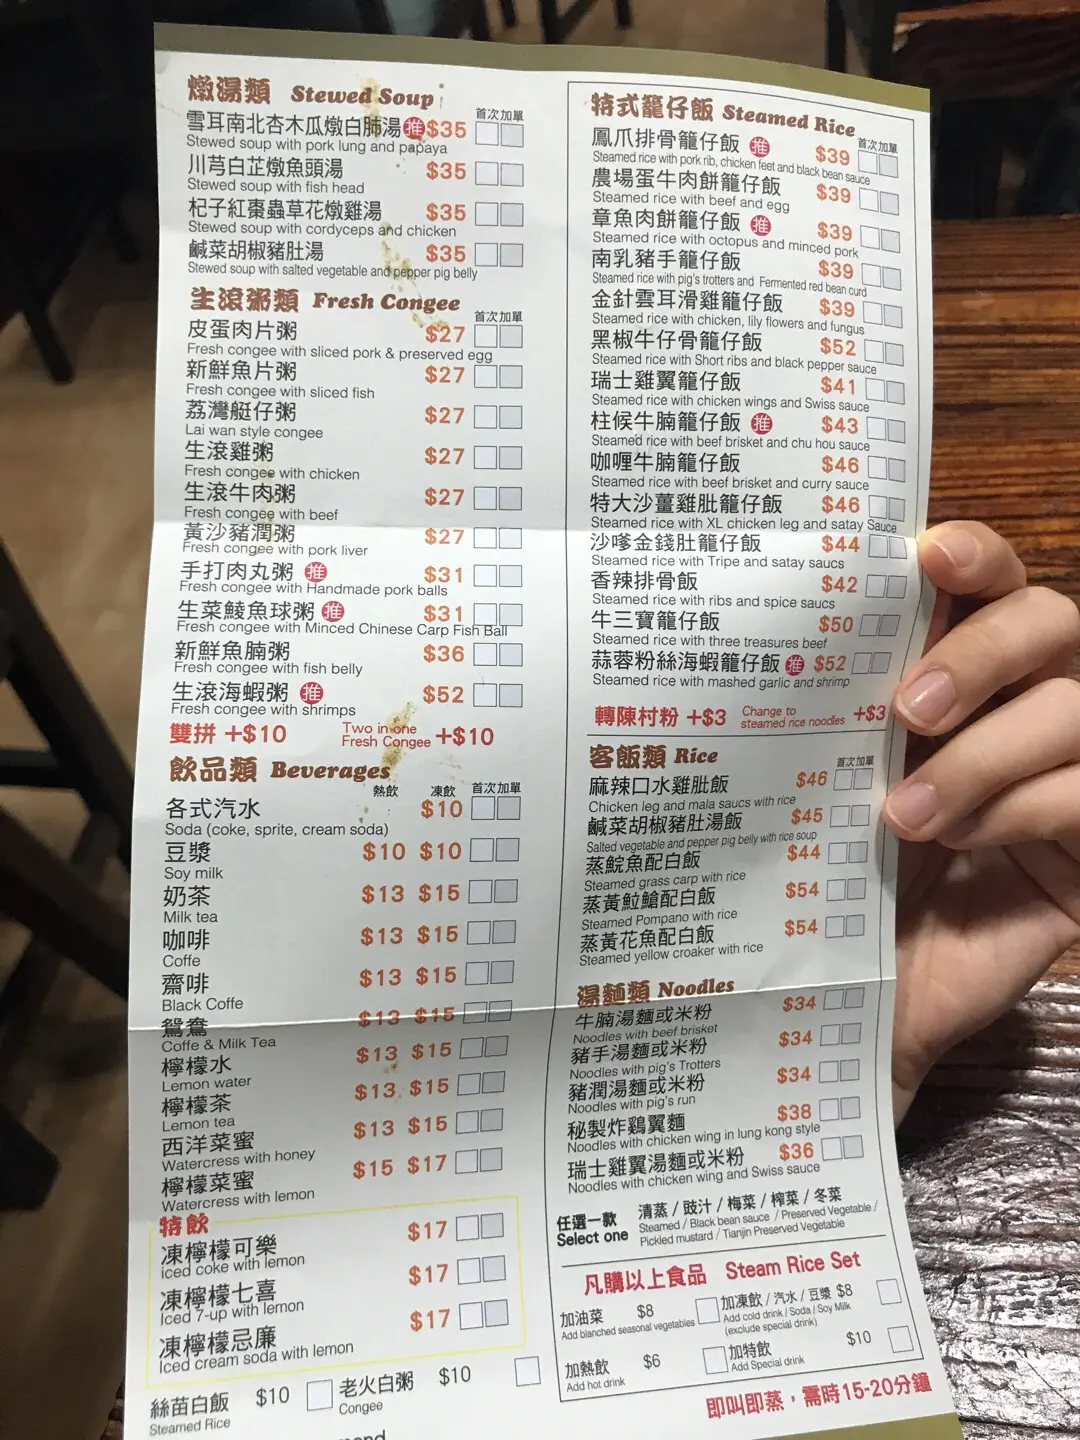 燉湯類 Stewed Soup
首次加單
雪耳南北杏木瓜燉白肺湯 推 $35
Stewed soup with pork lung and papaya
川芎白芷燉魚頭湯 $35
Stewed soup with fish head
杞子紅棗蟲草花燉雞湯 $35
Stewed soup with cordyceps and chicken
鹹菜胡椒豬肚湯 $35
Stewed soup with salted vegetable and pepper pig belly
生滾粥類 Fresh Congee
首次加單
皮蛋肉片粥 $27
Fresh congee with sliced pork & preserved egg
新鮮魚片粥 $27
Fresh congee with sliced fish
荔灣艇仔粥 $27
Lai wan style congee
生滾雞粥 $27
Fresh congee with chicken
生滾牛肉粥 $27
Fresh congee with beef
黃沙豬潤粥 $27
Fresh congee with pork liver
手打肉丸粥 推 $31
Fresh congee with Handmade pork balls
生菜鯪魚球粥 推 $31
Fresh congee with Minced Chinese Carp Fish Ball
新鮮魚腩粥 $36
Fresh congee with fish belly
生滾海蝦粥 推 $52
Fresh congee with shrimps
雙拼 +$10 Two in one Fresh Congee +$10
飲品類 Beverages
熱飲 凍飲 首次加單
各式汽水 $10
Soda (coke, sprite, cream soda)
豆漿 $10 $10
Soy milk
奶茶 $13 $15
Milk tea
咖啡 $13 $15
Coffe
齋啡 $13 $15
Black Coffe
鴛鴦 $13 $15
Coffe & Milk Tea
檸檬水 $13 $15
Lemon water
檸檬茶 $13 $15
Lemon tea
西洋菜蜜 $13 $15
Watercress with honey
檸檬菜蜜 $15 $17
Watercress with lemon
特飲
凍檸檬可樂 $17
iced coke with lemon
凍檸檬七喜 $17
Iced 7-up with lemon
凍檸檬忌廉 $17
Iced cream soda with lemon
絲苗白飯 $10 老火白粥 $10
Steamed Rice Congee
特式籠仔飯 Steamed Rice
首次加單
鳳爪排骨籠仔飯 推 $39
Steamed rice with pork rib, chicken feet and black bean sauce
農場蛋牛肉餅籠仔飯 $39
Steamed rice with beef and egg
章魚肉餅籠仔飯 推 $39
Steamed rice with octopus and minced pork
南乳豬手籠仔飯 $39
Steamed rice with pig's trotters and Fermented red bean curd
金針雲耳滑雞籠仔飯 $39
Steamed rice with chicken, lily flowers and fungus
黑椒牛仔骨籠仔飯 $52
Steamed rice with Short ribs and black pepper sauce
瑞士雞翼籠仔飯 $41
Steamed rice with chicken wings and Swiss sauce
柱候牛腩籠仔飯 推 $43
Steamed rice with beef brisket and chu hou sauce
咖喱牛腩籠仔飯 $46
Steamed rice with beef brisket and curry sauce
特大沙薑雞肶籠仔飯 $46
Steamed rice with XL chicken leg and satay Sauce
沙嗲金錢肚籠仔飯 $44
Steamed rice with Tripe and satay saucs
香辣排骨飯 $42
Steamed rice with ribs and spice saucs
牛三寶籠仔飯 $50
Steamed rice with three treasures beef
蒜蓉粉絲海蝦籠仔飯 推 $52
Steamed rice with mashed garlic and shrimp
轉陳村粉 +$3 Change to steamed rice noodles +$3
客飯類 Rice
首次加單
麻辣口水雞肶飯 $46
Chicken leg and mala saucs with rice
鹹菜胡椒豬肚湯飯 $45
Salted vegetable and pepper pig belly with rice soup
蒸鯇魚配白飯 $44
Steamed grass carp with rice
蒸黃䱽鰽配白飯 $54
Steamed Pompano with rice
蒸黃花魚配白飯 $54
Steamed yellow croaker with rice
湯麵類 Noodles
牛腩湯麵或米粉 $34
Noodles with beef brisket
豬手湯麵或米粉 $34
Noodles with pig's Trotters
豬潤湯麵或米粉 $34
Noodles with pig's run
秘製炸鷄翼麵 $38
Noodles with chicken wing in lung kong style
瑞士雞翼湯麵或米粉 $36
Noodles with chicken wing and Swiss sauce
任選一款 清蒸 / 豉汁 / 梅菜 / 榨菜 / 冬菜
Select one Steamed / Black bean sauce / Preserved Vegetable /
Pickled mustard / Tianjin Preserved Vegetable
凡購以上食品 Steam Rice Set
加油菜 $8 加凍飲 / 汽水 / 豆漿 $8
Add blanched seasonal vegetables Add cold drink / Soda / Soy Milk
(exclude special drink)
加熱飲 $6 加特飲 $10
Add hot drink Add Special drink
即叫即蒸，需時15-20分鐘